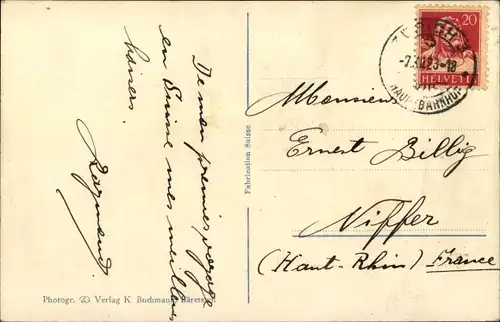 De mon premier voyage
en Suisse mes meilleurs
baisers.
Raymond
Fabrication Suisse
Photogr. & Verlag K. Buchmann, Bäretswil
20
HELVETIA
-7.XI.25-18
HAUPTBAHNHOF
Monsieur
Ernest Billig
Niffer
(Haut-Rhin) France